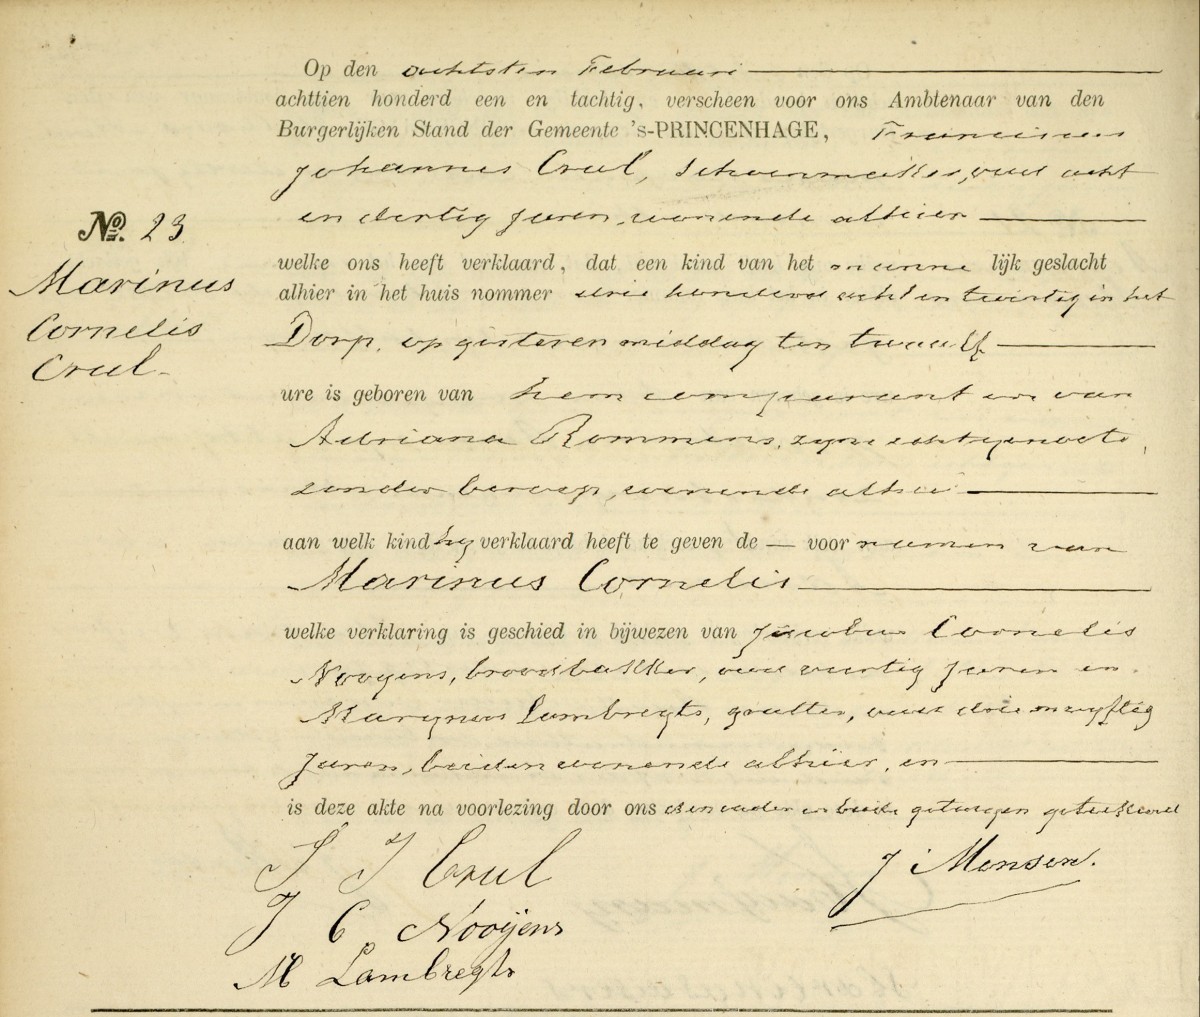 Op den achtsten Februari
achttien honderd een en tachtig, verscheen voor ons Ambtenaar van den
Burgerlijken Stand der Gemeente 's-PRINCENHAGE, Franciscus
Johannes Crul, Schoenmaker, oud acht
en dertig jaren, wonende alhier
No. 23
Marinus
Cornelis
Crul
welke ons heeft verklaard, dat een kind van het manne lijk geslacht
alhier in het huis nommer drie honderd acht en twintig in het
Dorp, op gisteren middag ten twaalf
ure is geboren van hem comparant en van
Adriana Rommens, zyne echtgenoote,
zonder beroep, wonende alhier
aan welk kind hy verklaard heeft te geven de — voor namen van
Marinus Cornelis
welke verklaring is geschied in bijwezen van Jacobus Cornelis
Nooyens, broodbakker, oud veertig jaren en
Marynus Lambregts, oud drie en vyftig
jaren, beiden wonende alhier, en
is deze akte na voorlezing door ons den vader en beide getuigen geteekend
J Crul
J Mensen.
J C Nooijens
M Lambregts